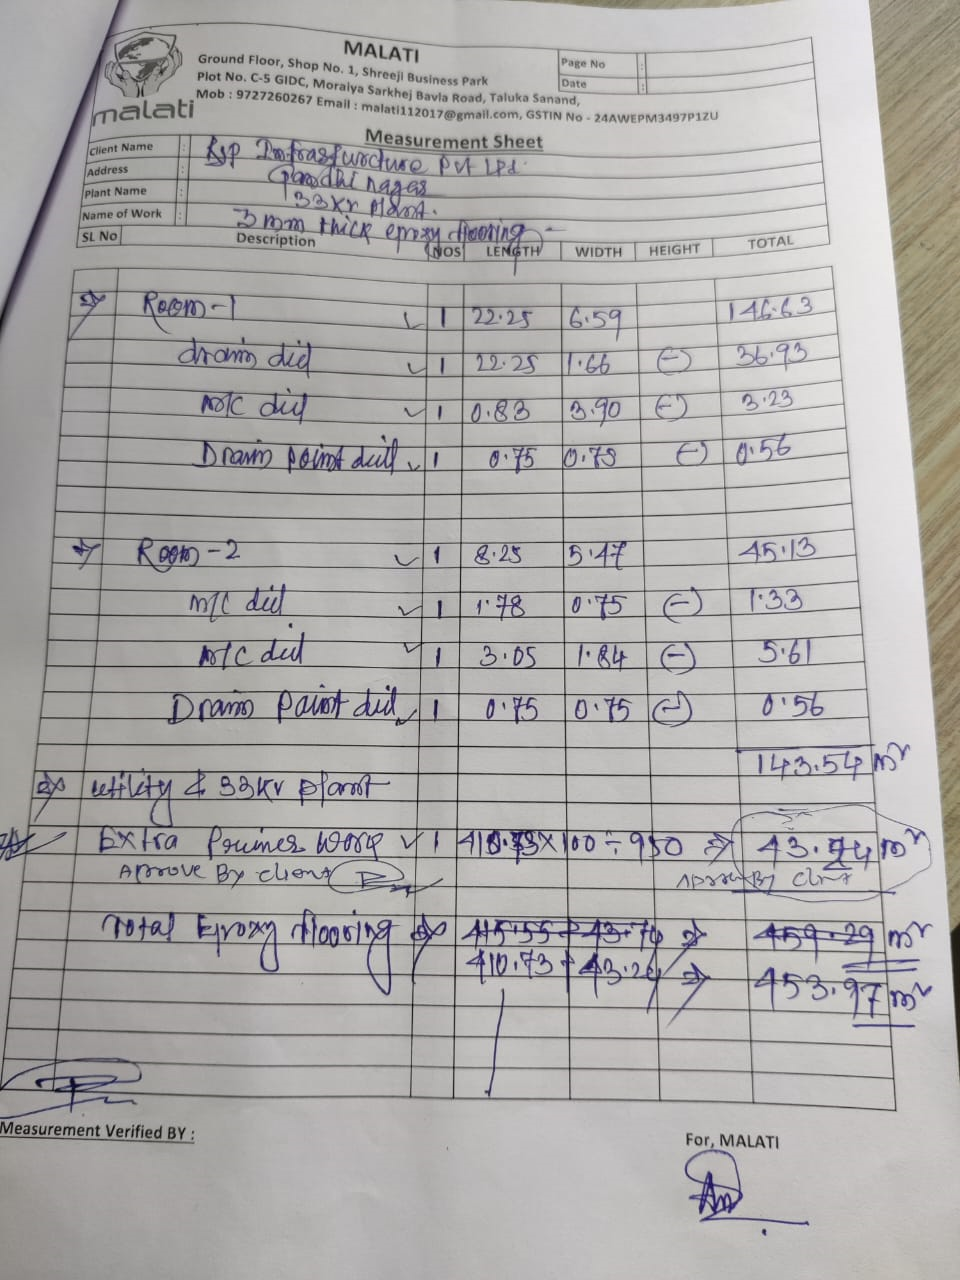 MALATI
Ground Floor, Shop No. 1, Shreeji Business Park
Plot No. C-5 GIDC, Moraiya Sarkhej Bavla Road, Taluka Sanand,
Mob : 9727260267 Email : malati112017@gmail.com, GSTIN No - 24AWEPM3497P1ZU
malati
Page No :
Date :
Measurement Sheet
Client Name : Infrasfurcture Pvt Ltd.
Address : Gandhi nagar
Plant Name : 33KV Plant.
Name of Work : 3 mm thick epoxy flooring
SL No Description NOS LENGTH WIDTH HEIGHT TOTAL
Room-1 1 22.25 6.59 146.63
drain did 1 22.25 1.66 (-) 36.93
M/C did 1 0.83 3.90 (-) 3.23
Drain point did 1 0.75 0.75 (-) 0.56
Room-2 1 8.25 5.47 45.13
M/C did 1 1.78 0.75 (-) 1.33
M/C did 1 3.05 1.84 (-) 5.61
Drain point did 1 0.75 0.75 (-) 0.56
143.54 m²
utility & 33KV plant
Extra Primer Work 1 410.73 × 100 ÷ 950 ⇒ m²
Approve By client
Approve By client
Total Epoxy flooring ⇒ 415.55 + 43.74 ⇒ 459.29 m²
410.73 + 43.24 ⇒ 453.97 m²
Measurement Verified BY :
For, MALATI